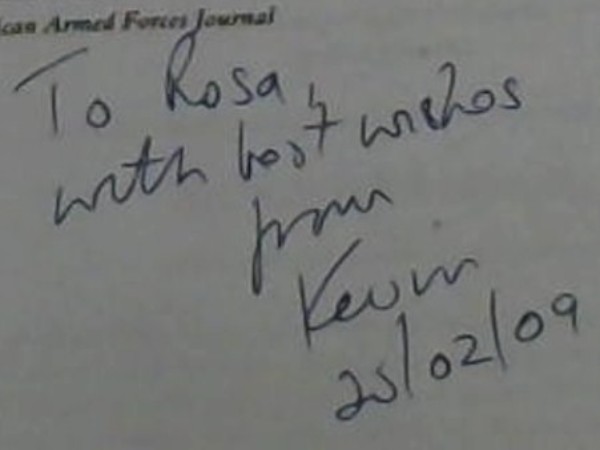 can Armed Forces Journal
To Rosa,
with best wishes
from
Kevin
25/02/09